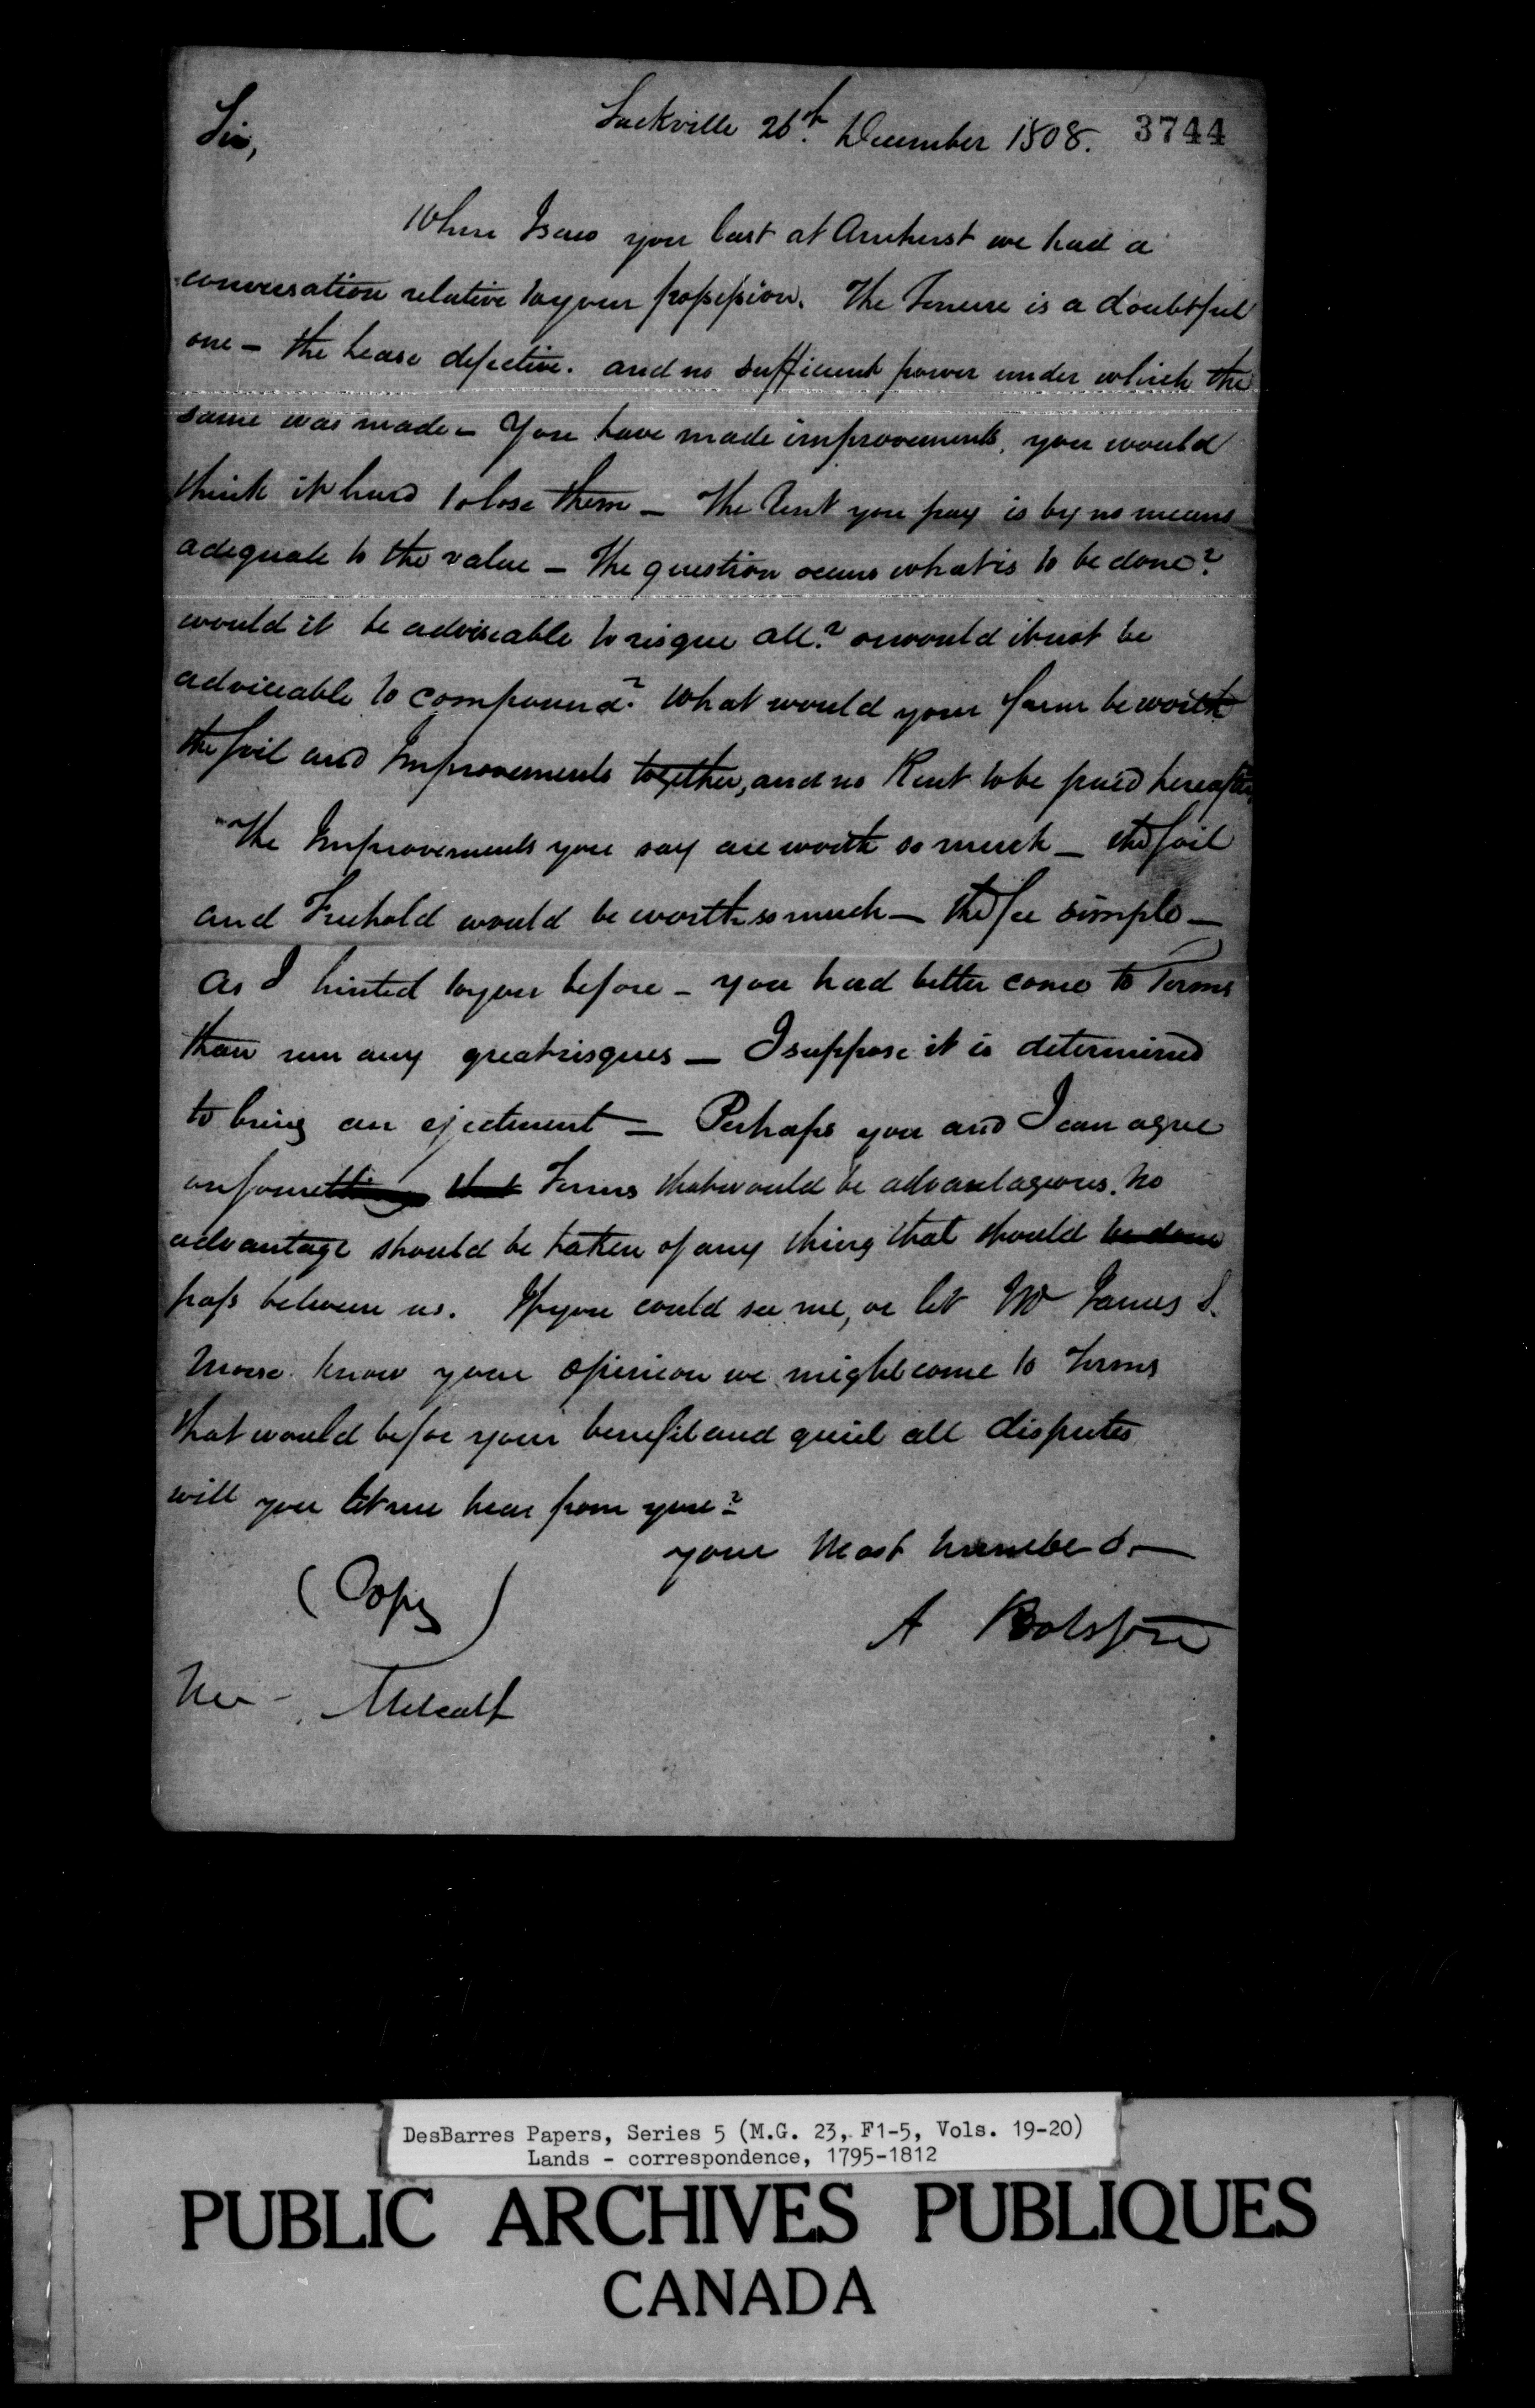 Sir,
Sackville 26th December 1808. 3744
When I saw you last at Amherst we had a
conversation relative to your possession. The Tenure is a doubtful
one - the Lease defective. and no sufficient power under which the
same was made - You have made improvements, you would
think it hard to lose them - The Rent you pay is by no means
adequate to the value - The question occurs what is to be done?
would it be adviseable to risque all? or would it not be
adviseable to compound? What would your farm be worth
the soil and Improvements together, and no Rent to be paid hereafter,
The Improvements you say are worth so much - the soil
and Freehold would be worth so much - the fee simple -
As I hinted to you before - you had better come to Terms
than run any great risques - I suppose it is determined
to bring an ejectment - Perhaps you and I can agree
on something that Terms that would be advantageous. No
advantage should be taken of any thing that should be done
pass between us. If you could see me, or let Mr James S.
Morse know your opinion we might come to terms
that would be for your benefit and quiet all disputes
will you let me hear from you?
your Most humble S.
(Copy)
A Botsford
Mr Metcalf
DesBarres Papers, Series 5 (M.G. 23, F1-5, Vols. 19-20)
Lands - correspondence, 1795-1812
PUBLIC ARCHIVES PUBLIQUES
CANADA